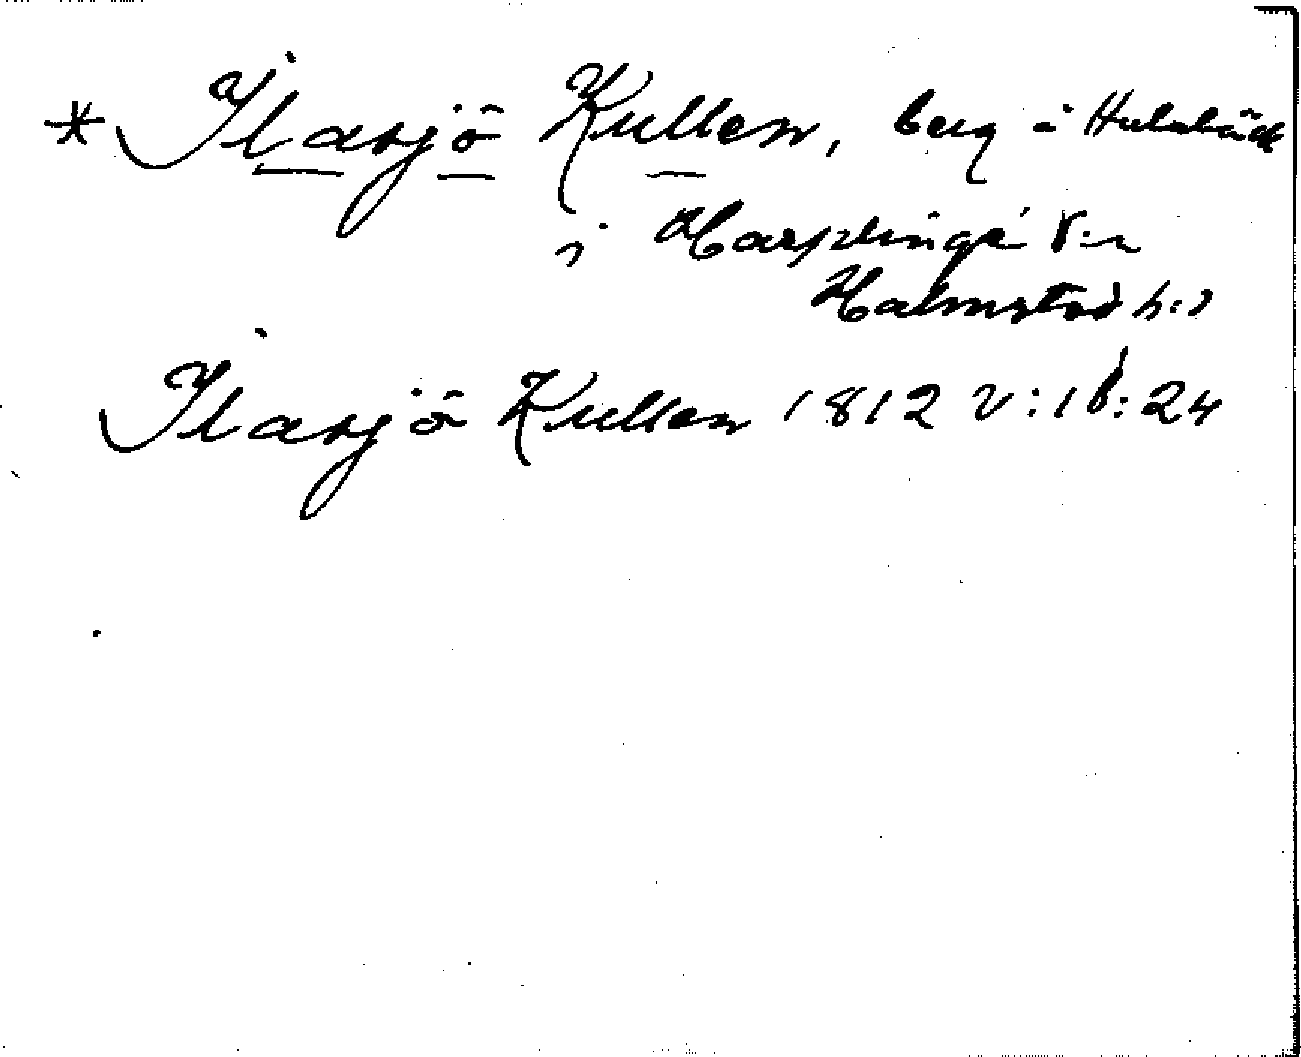 * Ilasjö Kullen, berg å Hulabäck
i Harplinge s:n
Halmstad h:d
Ilasjö Kullen 1812 v:16:24